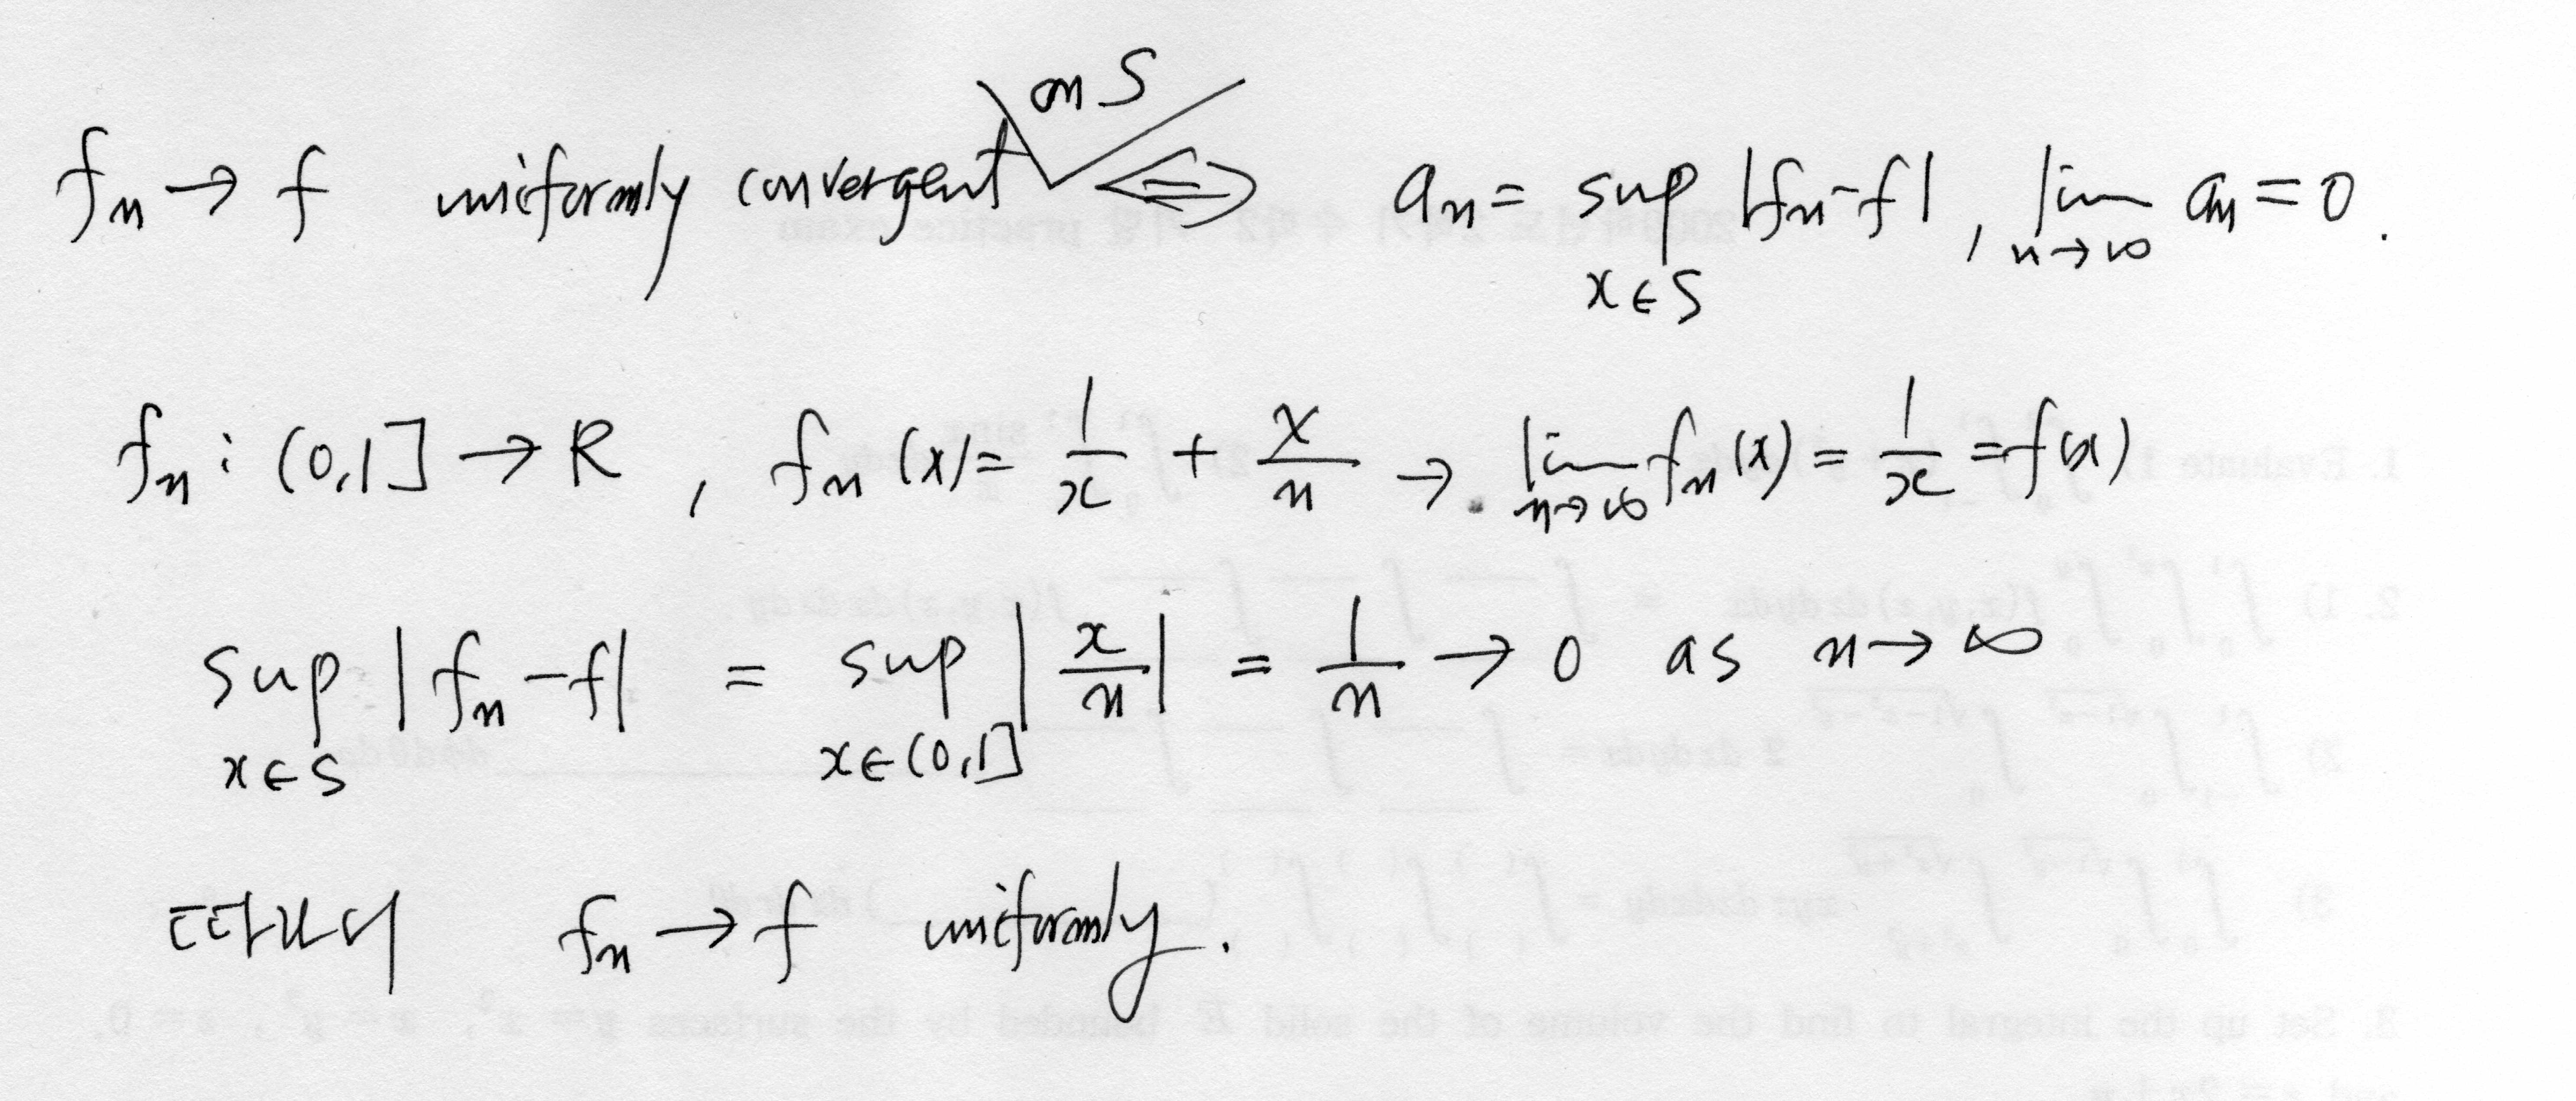 fₙ → f uniformly convergent on S ⟺ aₙ = sup_{x∈S} |fₙ-f| , lim_{n→∞} aₙ = 0.
fₙ : (0,1] → R , fₙ(x) = 1/x + x/n → lim_{n→∞} fₙ(x) = 1/x = f(x)
sup_{x∈S} |fₙ-f| = sup_{x∈(0,1]} |x/n| = 1/n → 0 as n → ∞
따라서 fₙ → f uniformly.